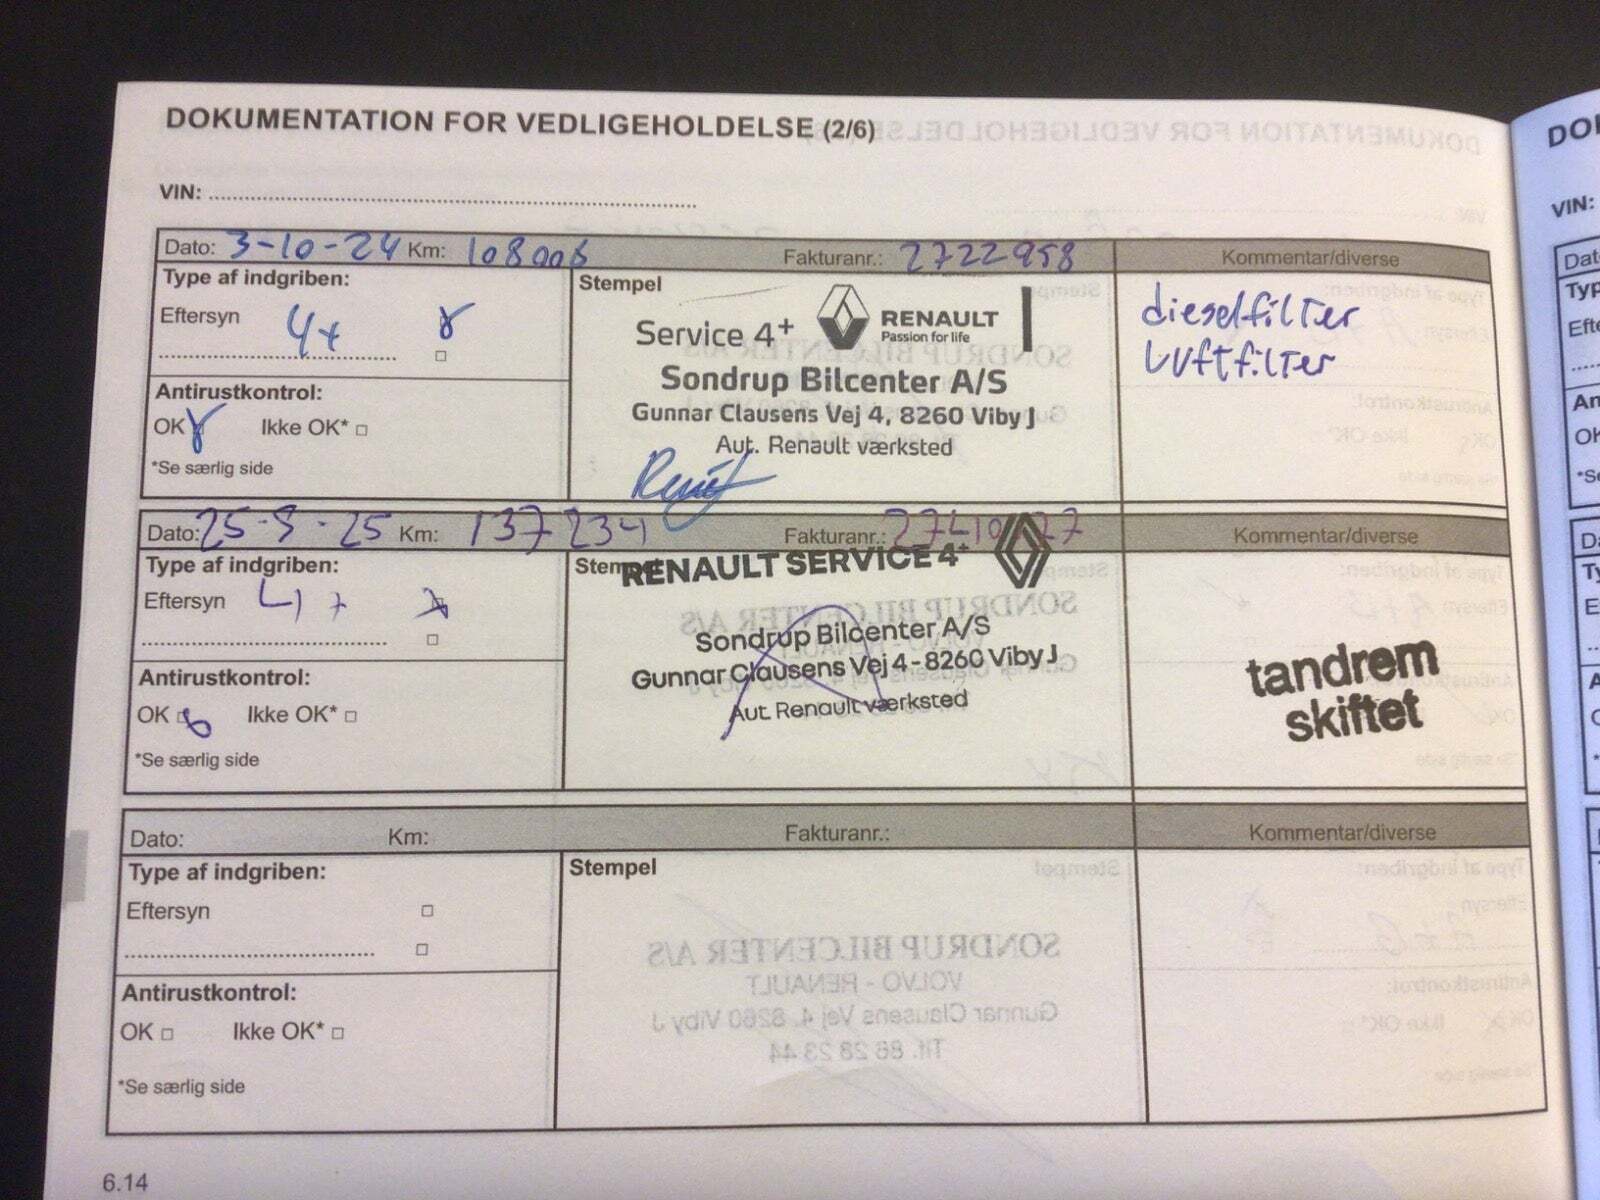 DOKUMENTATION FOR VEDLIGEHOLDELSE (2/6)
VIN:
Dato: 3-10-24 Km: 108006 Fakturanr.: 2722958 Kommentar/diverse
Type af indgriben:
Eftersyn 4+
Antirustkontrol:
OK Ikke OK*
*Se særlig side
Stempel
Service 4+ RENAULT
Passion for life
Sondrup Bilcenter A/S
Gunnar Clausens Vej 4, 8260 Viby J
Aut. Renault værksted
dieselfilter
luftfilter
Dato: 25-9-25 Km: 137234 Fakturanr.: Kommentar/diverse
Type af indgriben:
Eftersyn 4+
Antirustkontrol:
OK Ikke OK*
*Se særlig side
Stempel
RENAULT SERVICE 4+
Sondrup Bilcenter A/S
Gunnar Clausens Vej 4 - 8260 Viby J
Aut. Renault værksted
tandrem
skiftet
Dato: Km: Fakturanr.: Kommentar/diverse
Type af indgriben:
Eftersyn
Antirustkontrol:
OK Ikke OK*
*Se særlig side
Stempel
6.14
VIN: